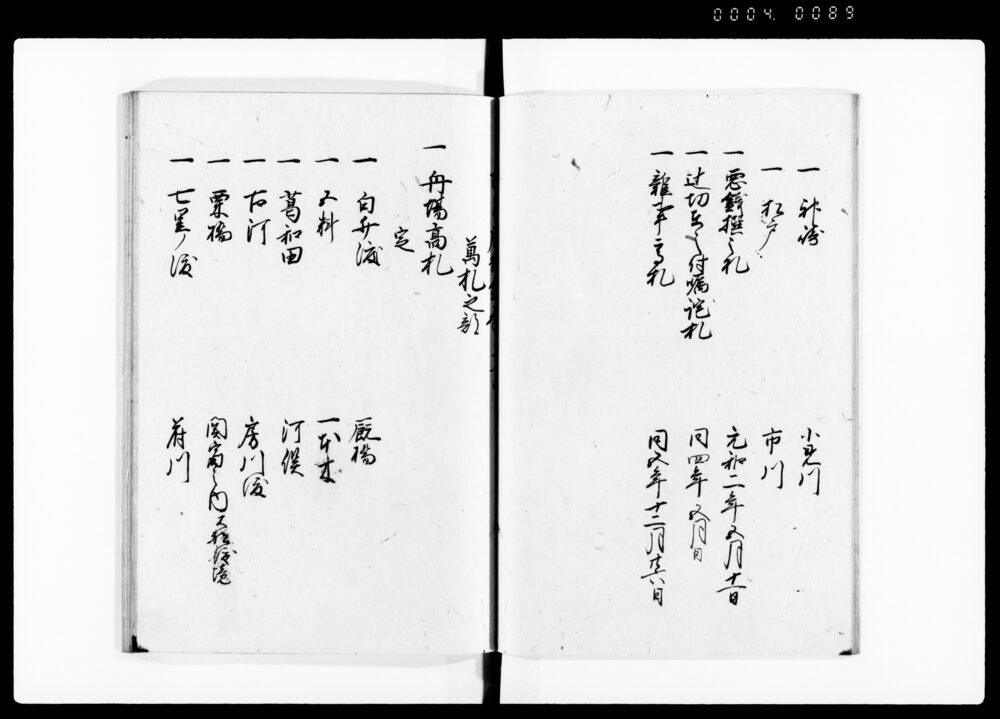 0004. 0089
一 神崎 小見川
一 松戸 市川
一 悪銭撰之札 元和二年五月十一日
一 辻切在之付嘱託札 同四年五月日
一 雑事之高札 同五年十二月廿六日
萬札之部
一 舟場高札
定
一 白井渡 厩橋
一 五料 一本木
一 葛和田 河俣
一 古河 房川渡
一 栗橋 関宿之内
一 七里ノ渡 府川